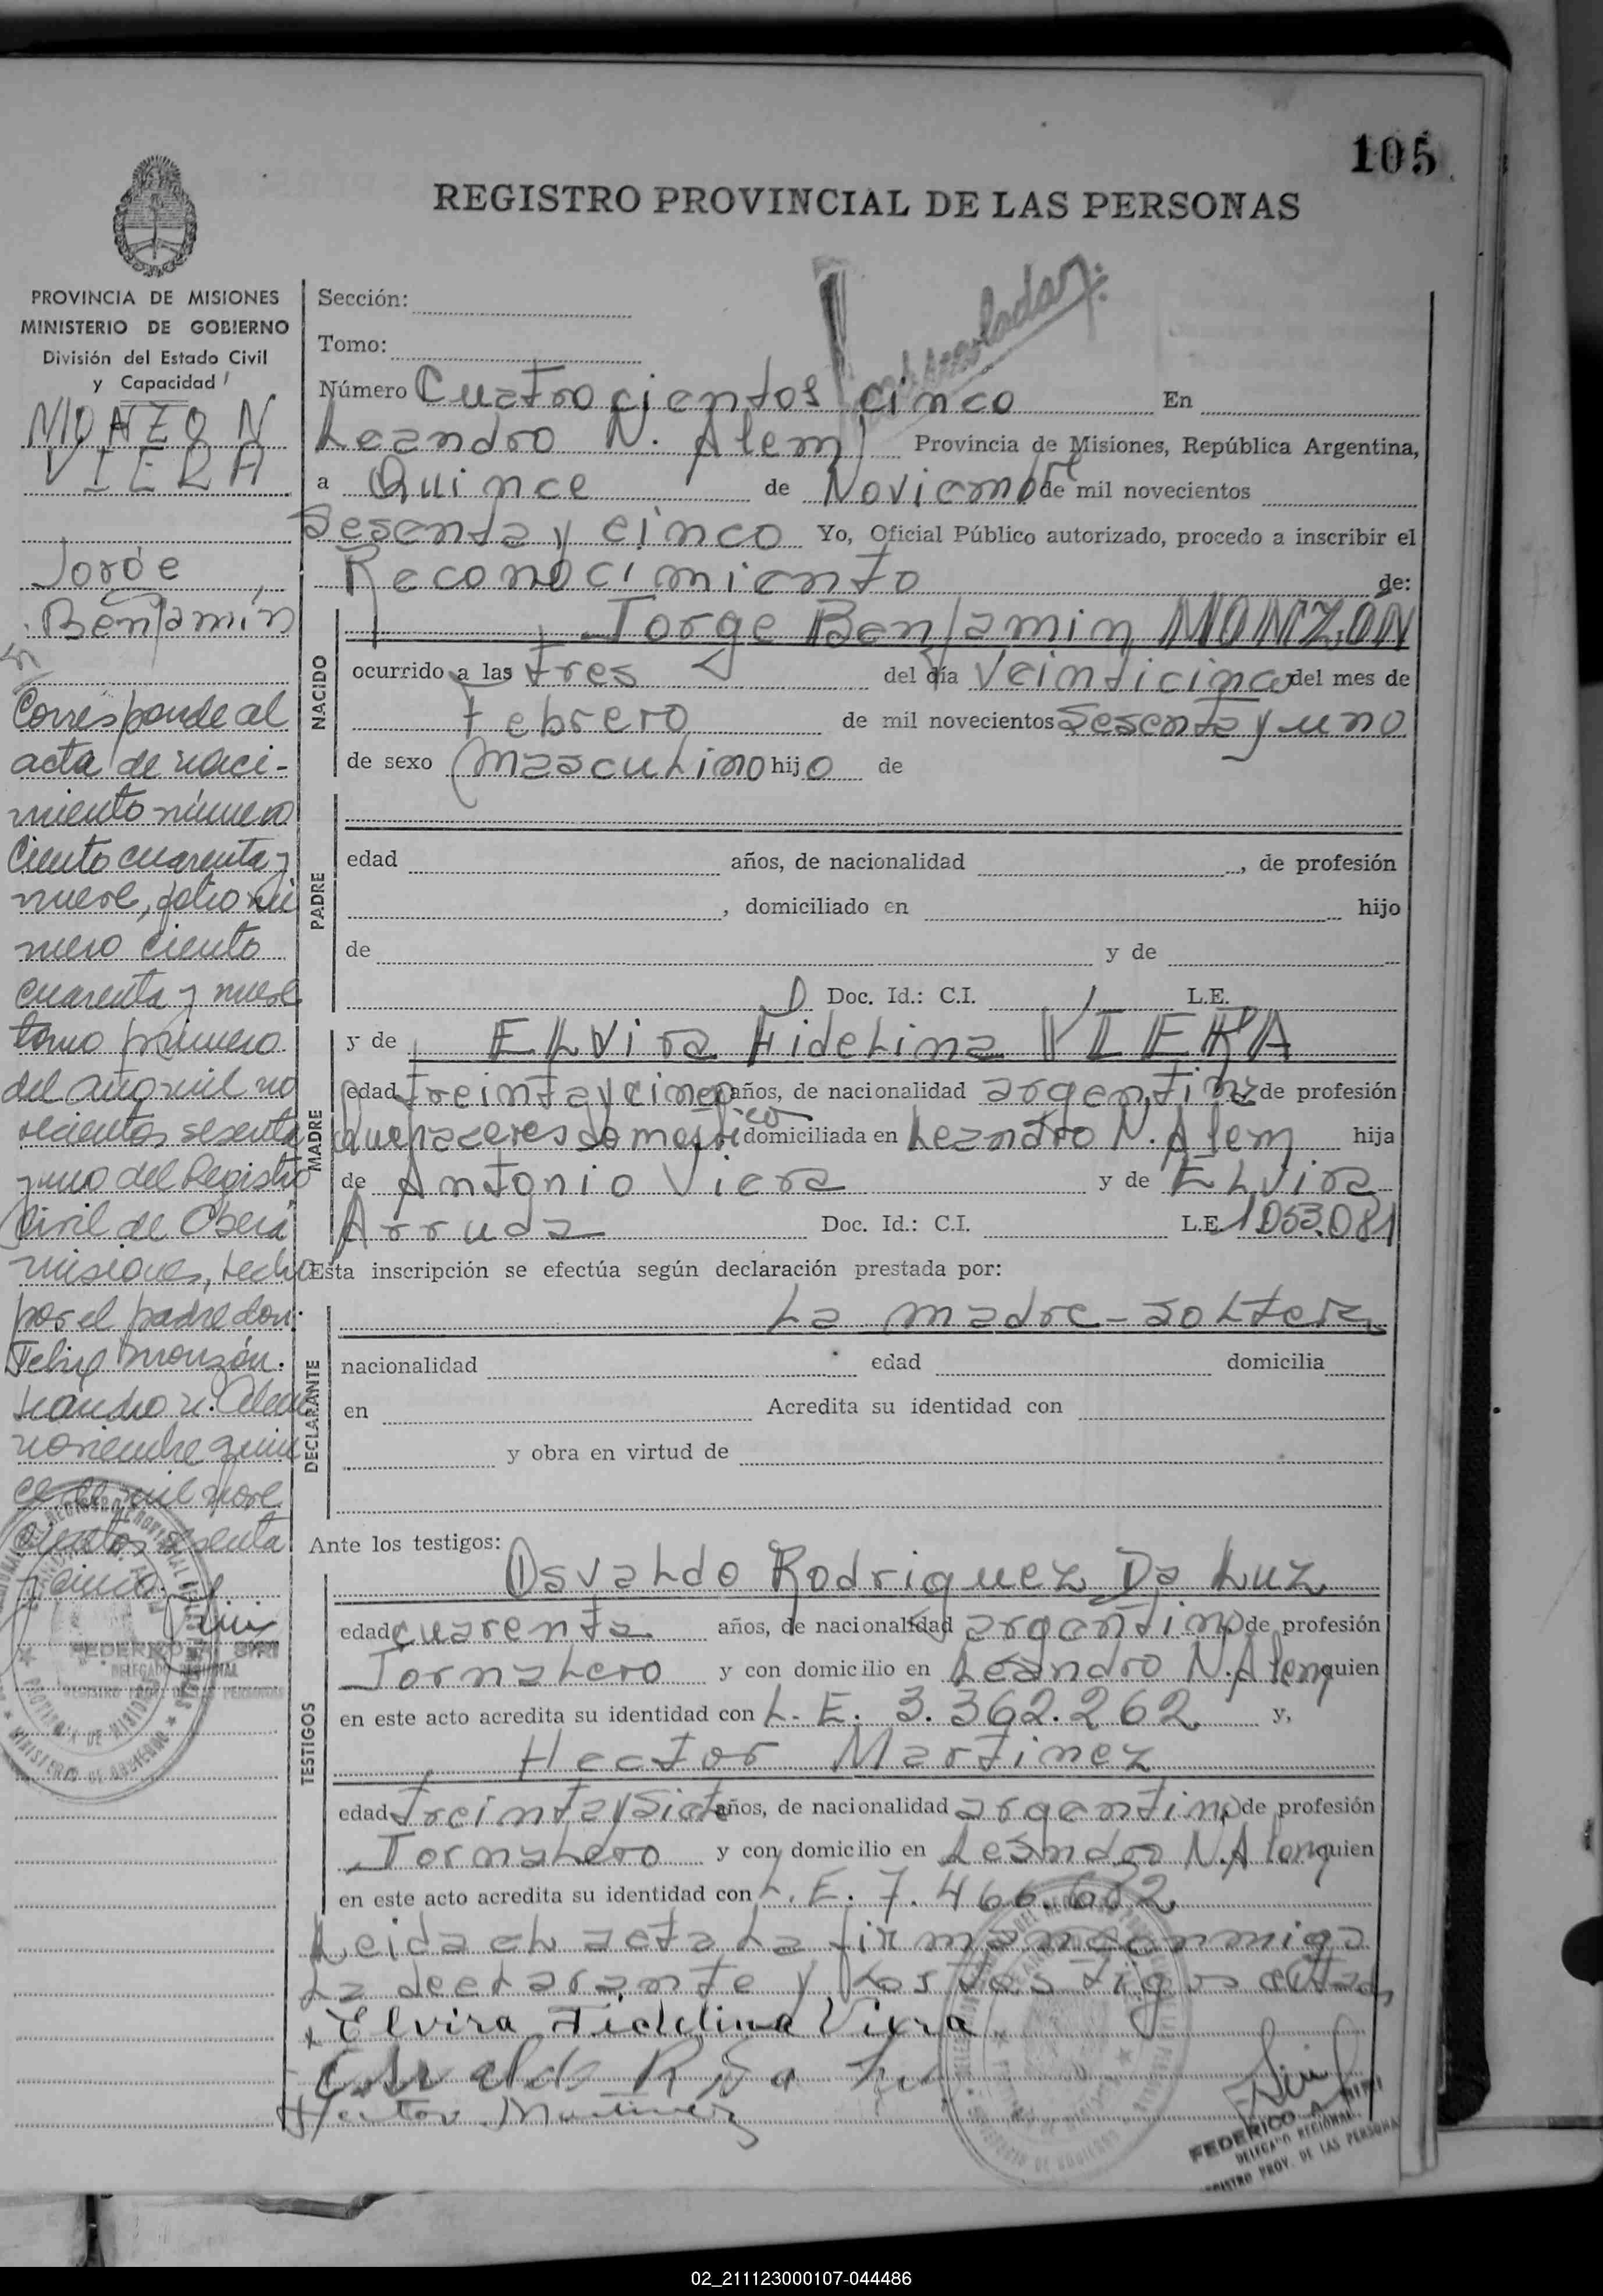 105
REGISTRO PROVINCIAL DE LAS PERSONAS
PROVINCIA DE MISIONES
MINISTERIO DE GOBIERNO
División del Estado Civil
y Capacidad
MONZON
VIERA
Jorge
Benjamín
Corresponde al
acta de naci-
miento número
ciento cuarenta y
nueve, folio nú
mero ciento
cuarenta y nueve
tomo primero
del año mil no
vecientos sesenta
y uno del Registro
Civil de Oberá
misiones, hecho
por el padre don
Felipe Monzón.
Leandro N. Alem
noviembre quin
ce de mil nove
cientos sesenta
y cinco.
FEDERICO A. SIRI
DELEGADO REGIONAL
REGISTRO PROV. DE LAS PERSONAS
Sección:
Tomo:
Número Cuatrocientos cinco En
Leandro N. Alem Provincia de Misiones, República Argentina,
a Quince de Noviembre de mil novecientos
Sesenta y cinco Yo, Oficial Público autorizado, procedo a inscribir el
Reconocimiento de:
NACIDO
Jorge Benjamin MONZON
ocurrido a las tres del día Veinticinco del mes de
Febrero de mil novecientos Sesenta y uno
de sexo masculino hijo de
PADRE
edad años, de nacionalidad , de profesión
, domiciliado en hijo
de y de
Doc. Id.: C.I. L.E.
MADRE
y de ELvira FideLina VIERA
edad treinta y cinco años, de nacionalidad argentina de profesión
quehaceres domestico domiciliada en Leandro N. Alem hija
de Antonio Viera y de ELvira
Arruda Doc. Id.: C.I. L.E. 1.053.081
Esta inscripción se efectúa según declaración prestada por:
DECLARANTE
La madre-soltera
nacionalidad edad domicilia
en Acredita su identidad con
y obra en virtud de
Ante los testigos:
TESTIGOS
Osvaldo Rodriguez Da Luz
edad cuarenta años, de nacionalidad argentino de profesión
Jornalero y con domicilio en Leandro N. Alem quien
en este acto acredita su identidad con L. E. 3.362.262 y,
Hector Martinez
edad treinta y siete años, de nacionalidad argentino de profesión
Jornalero y con domicilio en Leandro N. Alem quien
en este acto acredita su identidad con L. E. 7.466.682
Leida el acta la firman conmigo
La declarante y Los testigos citados
Elvira Fidelina Viera
Hector Martinez
FEDERICO A. SIRI
DELEGADO REGIONAL
REGISTRO PROV. DE LAS PERSONAS
02_211123000107-044486